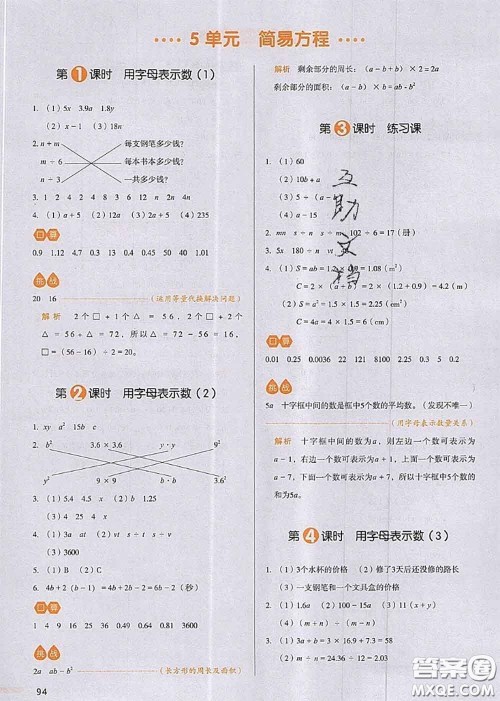 5 单元 简易方程
第1课时 用字母表示数(1)
1. (1)5x 3.9a 1.8y
(2)x-1 (3)18n
2. n+m 每支钢笔多少钱?
m÷6 每本书本多少钱?
n÷3 一共多少钱?
3. 4 8 1 2 3 4 6 8 12 n 2n 4n
4. (1)a+5 (2)12a (3)2a+5 (4)235
口算
0.9 1.12 4.7 0.3 0.13 0.45 19 40 0.01
挑战
20 16 (运用等量代换解决问题)
解析 2个□+1个△=56,2个□+
2个△+△=56+△=72,所以△=72-56=16,
□=(56-16)÷2=20。
第2课时 用字母表示数(2)
1. xy a² 15b c
2. b² 3.6×3.6 y·y 9²
y² 9×9 b·b 3.6²
3. (1)5.4 4.5 x (2)x
(3)4 25 4 x
4. (1)3a at (2)t=s÷v 15
(3)3600
5. (1)B (2)C
6. 4b+2(b-1)=4b+2b-2=6b-2(秒)
口算
1 4 9 16 25 36 49 64 81 100
挑战
2a ab-b² (长方形的周长及面积)
94
解析 剩余部分的周长:(a-b+b)×2=2a
剩余部分的面积:(a-b)×b=ab-b²
第3课时 练习课
1. (1)60
(2)10b+a
(3)5÷(a-
(4)a-15
互助文档
2. mn s÷n s÷m 102÷6=17(册)
3. 5x 180÷n vt
4. (1)S=ab=1.2×0.9=1.08(m²)
C=2×(a+b)=2×(1.2+0.9)=4.2(m)
(2)S=a²=1.5×1.5=2.25(cm²)
C=4a=4×1.5=6(cm)
口算
0.01 0.25 0.0036 22 121 8100 0.25 5.3 2 5
挑战
5a 十字框中间的数是框中5个数的平均数。(发现不唯一)
(用字母表示数量关系)
解析 十字框中间的数为a,则左边一个数可表示为
a-1,右边一个数可表示为a+1,上面一个数可表示为
a-7,下面一个数可表示为a+7,所以十字框中5个数的
和为5a。
第4课时 用字母表示数(3)
1. (1)3个水杯的价格 (2)修了3天后还没修的路长
(3)一支钢笔和一个文具盒的价格
2. (1)1.9a (2)100-15a (3)11m
(4)(m+n) (m-n)
3. (1)a+3b=3×16.9+7.3=58
(2)(m+n)÷(m-n)
答案圈
MXQE.COM